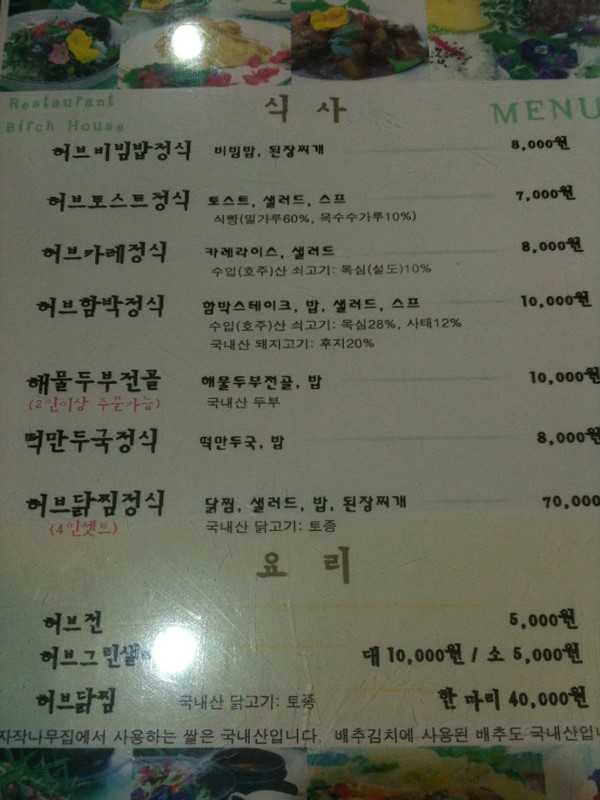 식 사
Restaurant
Birch House
MENU
허브비빔밥정식 비빔밥, 된장찌개 8,000원
허브토스트정식 토스트, 샐러드, 스프 7,000원
식빵(밀가루60%, 옥수수가루10%)
허브카레정식 카레라이스, 샐러드 8,000원
수입(호주)산 쇠고기: 목심(설도)10%
허브함박정식 함박스테이크, 밥, 샐러드, 스프 10,000원
수입(호주)산 쇠고기: 목심28%, 사태12%
국내산 돼지고기: 후지20%
해물두부전골 해물두부전골, 밥 10,000원
(2인이상 주문가능) 국내산 두부
떡만두국정식 떡만두국, 밥 8,000원
허브닭찜정식 닭찜, 샐러드, 밥, 된장찌개 70,000
(4인셋트) 국내산 닭고기: 토종
요 리
허브전 5,000원
허브그린샐 대 10,000원 / 소 5,000원
허브닭찜 국내산 닭고기: 토종 한 마리 40,000원
자작나무집에서 사용하는 쌀은 국내산입니다. 배추김치에 사용된 배추도 국내산입니